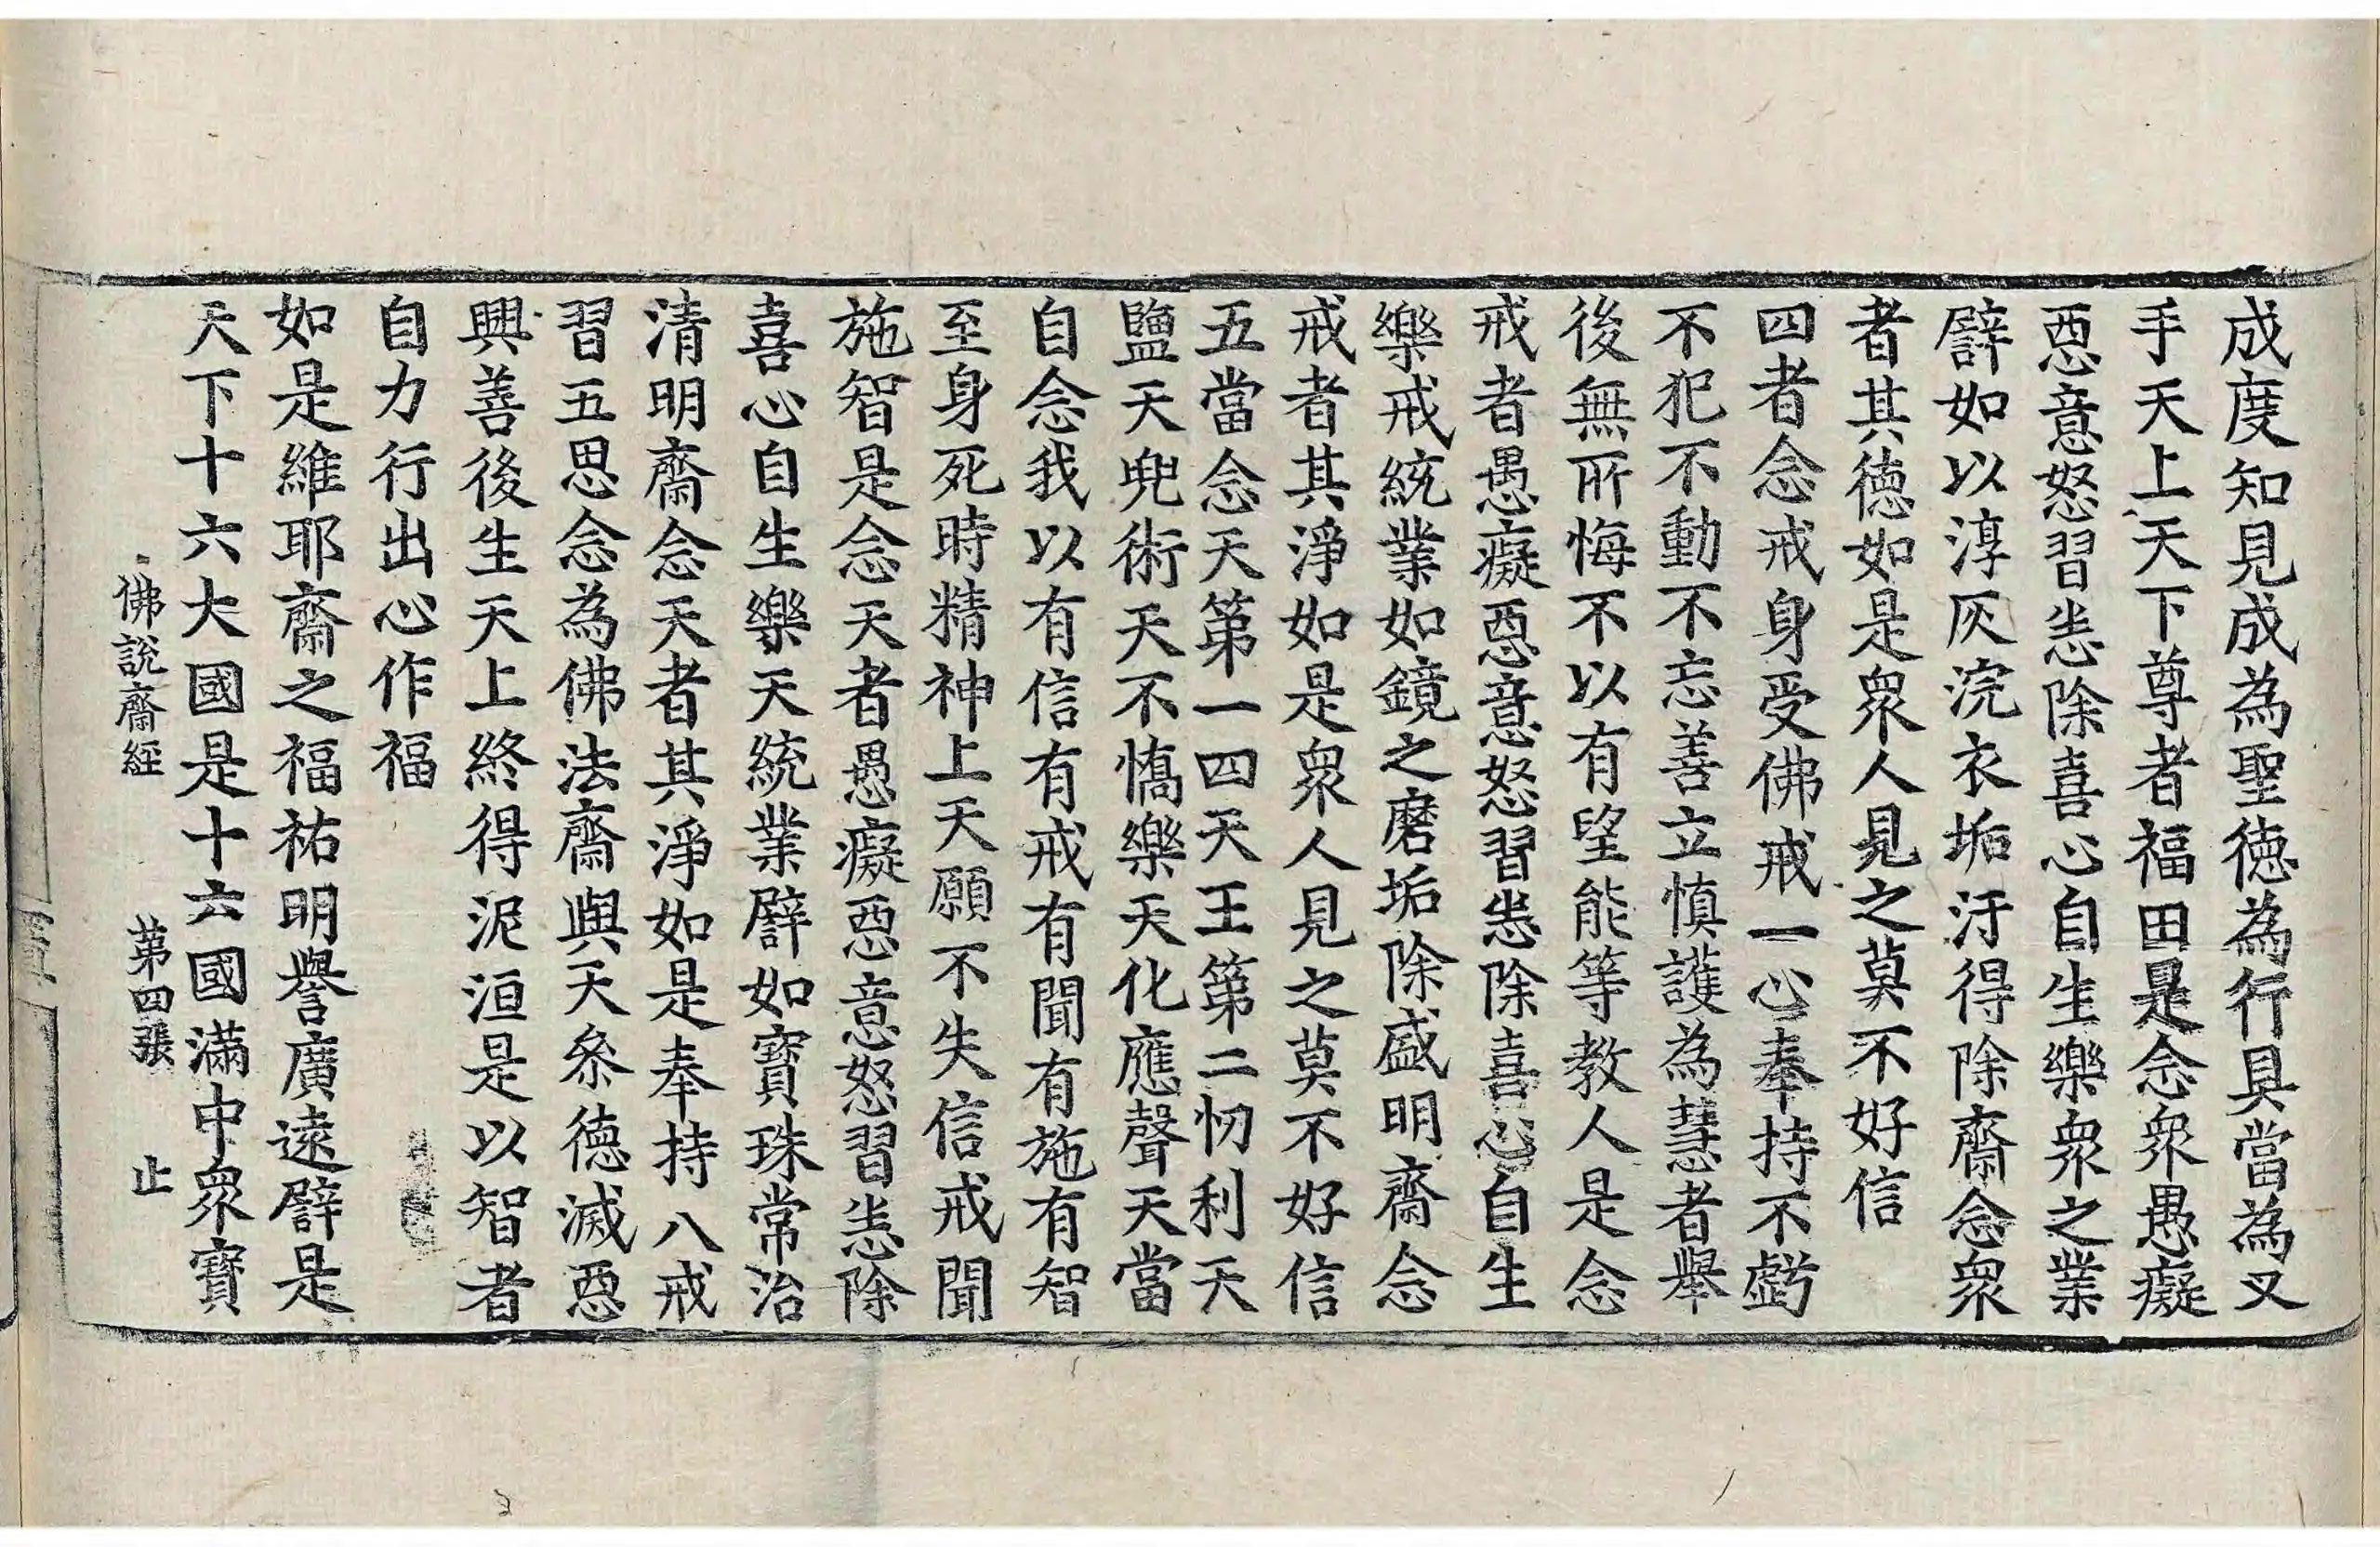 成度知見成為聖德為行具當為叉
手天上天下尊者福田是念衆愚癡
惡意怒習恚除喜心自生樂衆之業
譬如以淳灰浣衣垢汙得除齋念衆
者其德如是衆人見之莫不好信
四者念戒身受佛戒一心奉持不虧
不犯不動不忘善立慎護為慧者舉
後無所悔不以有望能等教人是念
戒者愚癡惡意怒習恚除喜心自生
樂戒統業如鏡之磨垢除盛明齋念
戒者其淨如是衆人見之莫不好信
五當念天第一四天王第二忉利天
鹽天兜術天不憍樂天化應聲天當
自念我以有信有戒有聞有施有智
至身死時精神上天願不失信戒聞
施智是念天者愚癡惡意怒習恚除
喜心自生樂天統業譬如寶珠常治
清明齋念天者其淨如是奉持八戒
習五思念為佛法齋與天叅德滅惡
興善後生天上終得泥洹是以智者
自力行出心作福
如是維耶齋之福祐明譽廣遠譬是
天下十六大國是十六國滿中衆寶
佛說齋經 第四張 止